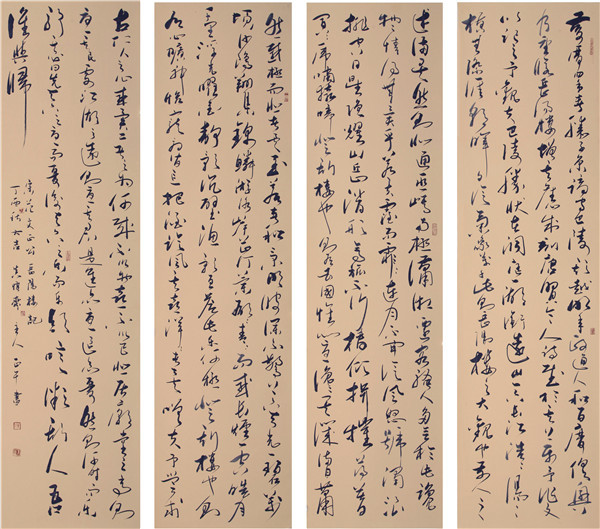 慶曆四年春滕子京謫守巴陵郡越明年政通人和百廢俱興
乃重修岳陽樓增其舊制刻唐賢今人詩賦於其上屬予作文
以記之予觀夫巴陵勝狀在洞庭一湖銜遠山吞長江浩浩湯湯
橫無際涯朝暉夕陰氣象萬千此則岳陽樓之大觀也前人之
述備矣然則北通巫峽南極瀟湘遷客騷人多會於此覽
物之情得無異乎若夫霪雨霏霏連月不開陰風怒號濁浪
排空日星隱耀山岳潛形商旅不行檣傾楫摧薄暮
冥冥虎嘯猿啼登斯樓也則有去國懷鄉憂讒畏譏滿目蕭
然感極而悲者矣至若春和景明波瀾不驚上下天光一碧萬
頃沙鷗翔集錦鱗游泳岸芷汀蘭郁郁青青而或長煙一空皓月
千里浮光耀金靜影沉璧漁歌互答此樂何極登斯樓也則
有心曠神怡寵辱偕忘把酒臨風其喜洋洋者矣嗟夫予嘗求
古仁人之心或異二者之為何哉不以物喜不以己悲居廟堂之高則
憂其民處江湖之遠則憂其君是進亦憂退亦憂然則何時而樂
耶其必曰先天下之憂而憂後天下之樂而樂乎噫微斯人吾
誰與歸
宋范文正公岳陽樓記
丁酉秋大吉 主人正平書